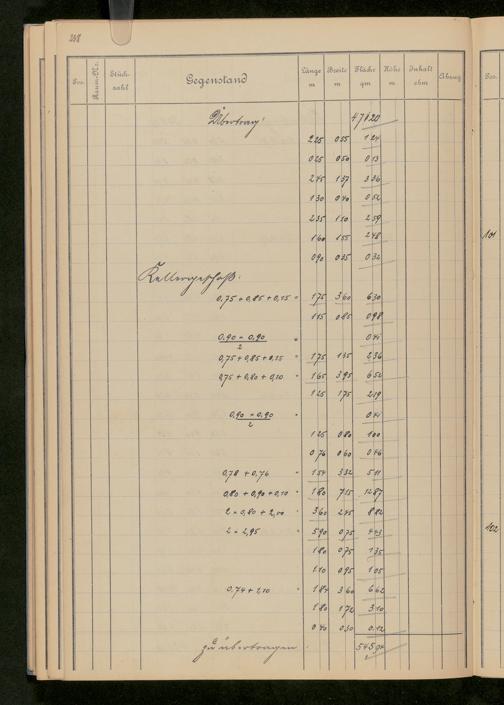 268
Pos. Raum-No. Stückzahl Gegenstand Länge m Breite m Fläche qm Höhe m Inhalt cbm Abzug Pos.
Übertrag:
2 25 0 55 1 24
0 25 0 50 0 13
2 45 1 37 3 36
1 30 0 40 0 52
2 35 1 10 2 59
1 60 1 55 2 48
101
0 90 0 35 0 32
Kellergeschoß:
0,75 + 0,85 + 0,15 = 1 75 3 60 6 30
1 15 0 85 0 98
0,90 × 0,90 / 2 = 0 41
0,75 + 0,85 + 0,15 = 1 75 1 35 2 36
0,75 + 0,80 + 0,10 = 1 65 3 95 6 52
1 25 1 75 2 19
0,90 × 0,90 / 2 = 0 41
1 25 0 80 1 00
0 76 0 60 0 46
0,78 + 0,76 = 1 54 3 32 5 11
0,80 + 0,90 + 0,10 = 1 80 7 15 12 87
3 60 2 45 8 82
2 × 2,95 = 5 90 0 75 4 43
102
1 80 0 75 1 35
1 10 0 95 1 05
0,74 + 1,10 = 1 84 3 60 6 62
1 80 1 72 3 10
0 40 0 30 0 12
zu übertragen 545,94